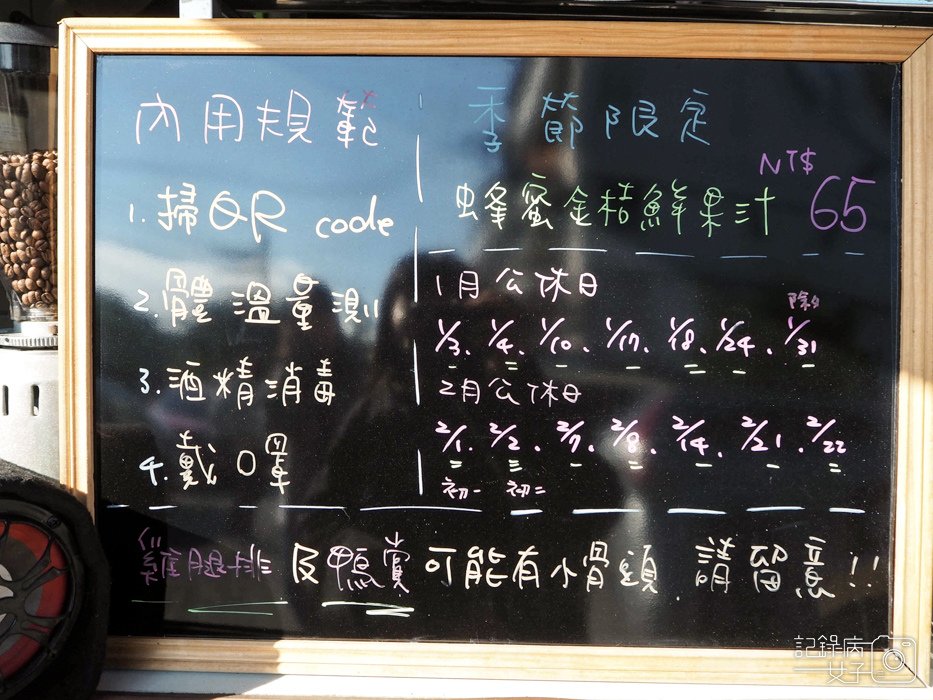 內用規範
1. 掃QR code
2. 體溫量測
3. 酒精消毒
4. 戴口罩
季節限定
蜂蜜金桔鮮果汁 NT$ 65
1月公休日
除夕
1/3. 1/4. 1/10. 1/17. 1/18. 1/24. 1/31
2月公休日
2/1. 2/2. 2/7. 2/8. 2/14. 2/21. 2/22
初一 初二
雞腿排及鴨賞可能有小骨頭.請留意!!
記錄病
女子